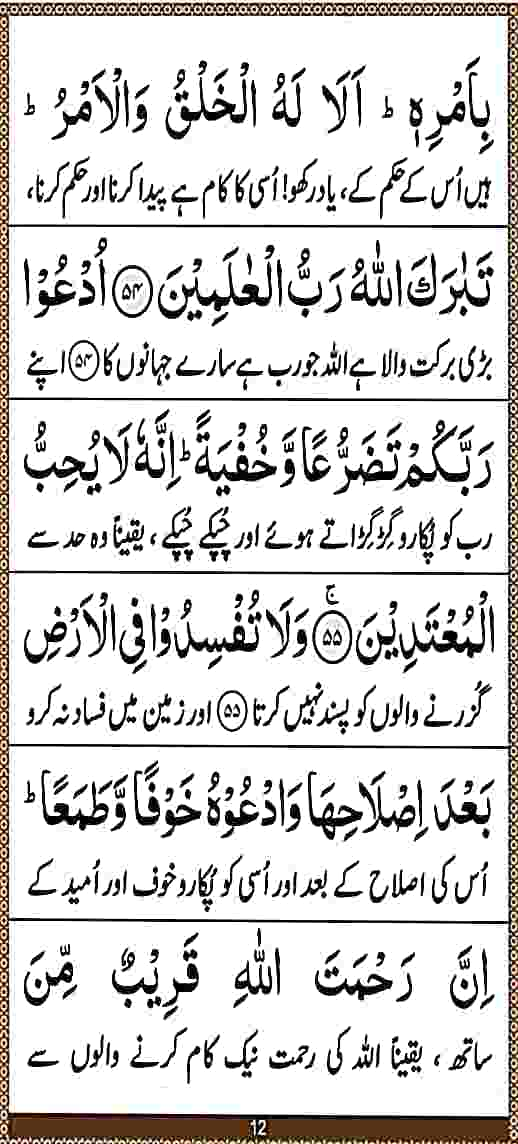 بِاَمْرِهٖ ؕ اَلَا لَهُ الْخَلْقُ وَالْاَمْرُ ؕ
ہیں اُس کے حکم کے، یاد رکھو! اُسی کا کام ہے پیدا کرنا اور حکم کرنا،
تَبٰرَكَ اللّٰهُ رَبُّ الْعٰلَمِيْنَ ﴿۵۴﴾ اُدْعُوْا
بڑی برکت والا ہے اللہ جو رب ہے سارے جہانوں کا ﴿۵۴﴾ اپنے
رَبَّكُمْ تَضَرُّعًا وَّخُفْيَةً ؕ اِنَّهٗ لَا يُحِبُّ
رب کو پُکارو گِڑگِڑاتے ہوئے اور چُپکے چُپکے، یقیناً وہ حد سے
الْمُعْتَدِيْنَ ﴿۵۵﴾ ۚ وَلَا تُفْسِدُوْا فِي الْاَرْضِ
گُزرنے والوں کو پسند نہیں کرتا ﴿۵۵﴾ اور زمین میں فساد نہ کرو
بَعْدَ اِصْلَاحِهَا وَادْعُوْهُ خَوْفًا وَّطَمَعًا ؕ
اُس کی اصلاح کے بعد اور اُسی کو پُکارو خوف اور اُمید کے
اِنَّ رَحْمَتَ اللّٰهِ قَرِيْبٌ مِّنَ
ساتھ، یقیناً اللہ کی رحمت نیک کام کرنے والوں سے
12